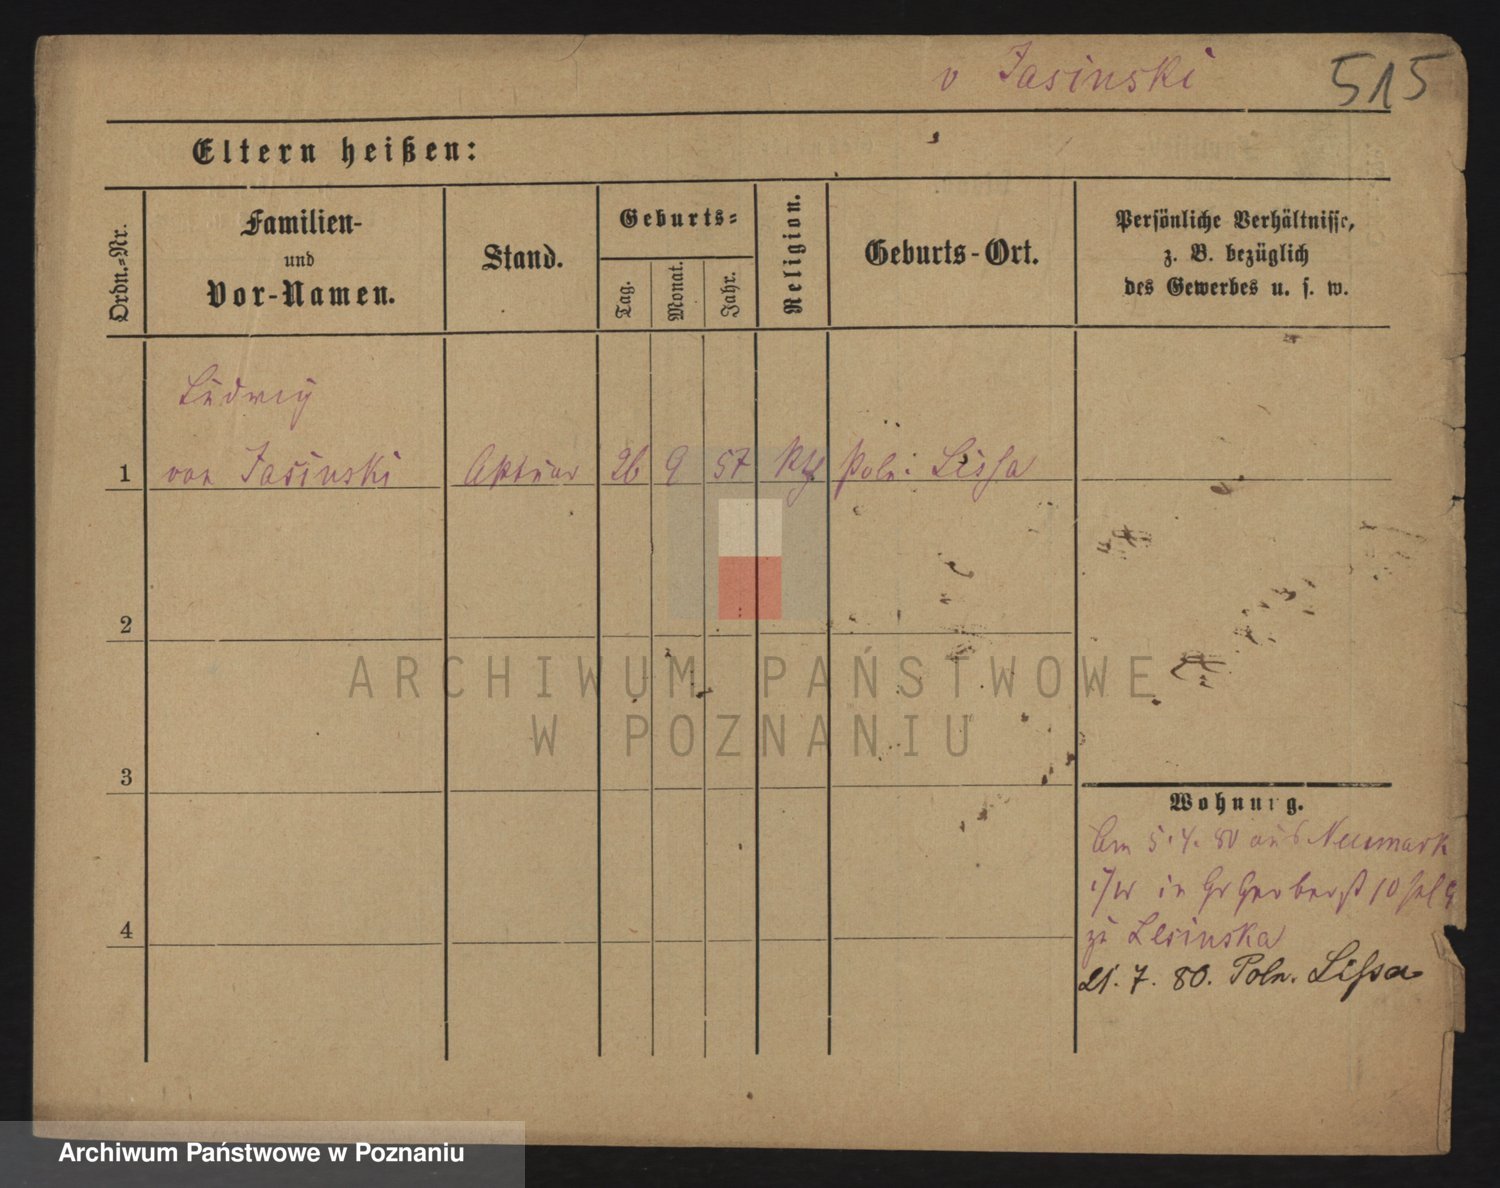 v Jasinski
515
Eltern heißen:
Ordn.-Nr.
Familien-
und
Vor-Namen.
Stand.
Geburts-
Tag.
Monat.
Jahr.
Religion.
Geburts-Ort.
Persönliche Verhältnisse,
z. B. bezüglich
des Gewerbes u. s. w.
Ludwig
1 von Jasinski Aktuar 26 9 57 Kth Poln: Lissa
2
3
4
Wohnung.
Am 5.4.80 aus Neumark
i/W in Gr Gerberst 10
zu Lesinska
21.7.80. Poln. Lissa
ARCHIWUM PAŃSTWOWE
W POZNANIU
Archiwum Państwowe w Poznaniu